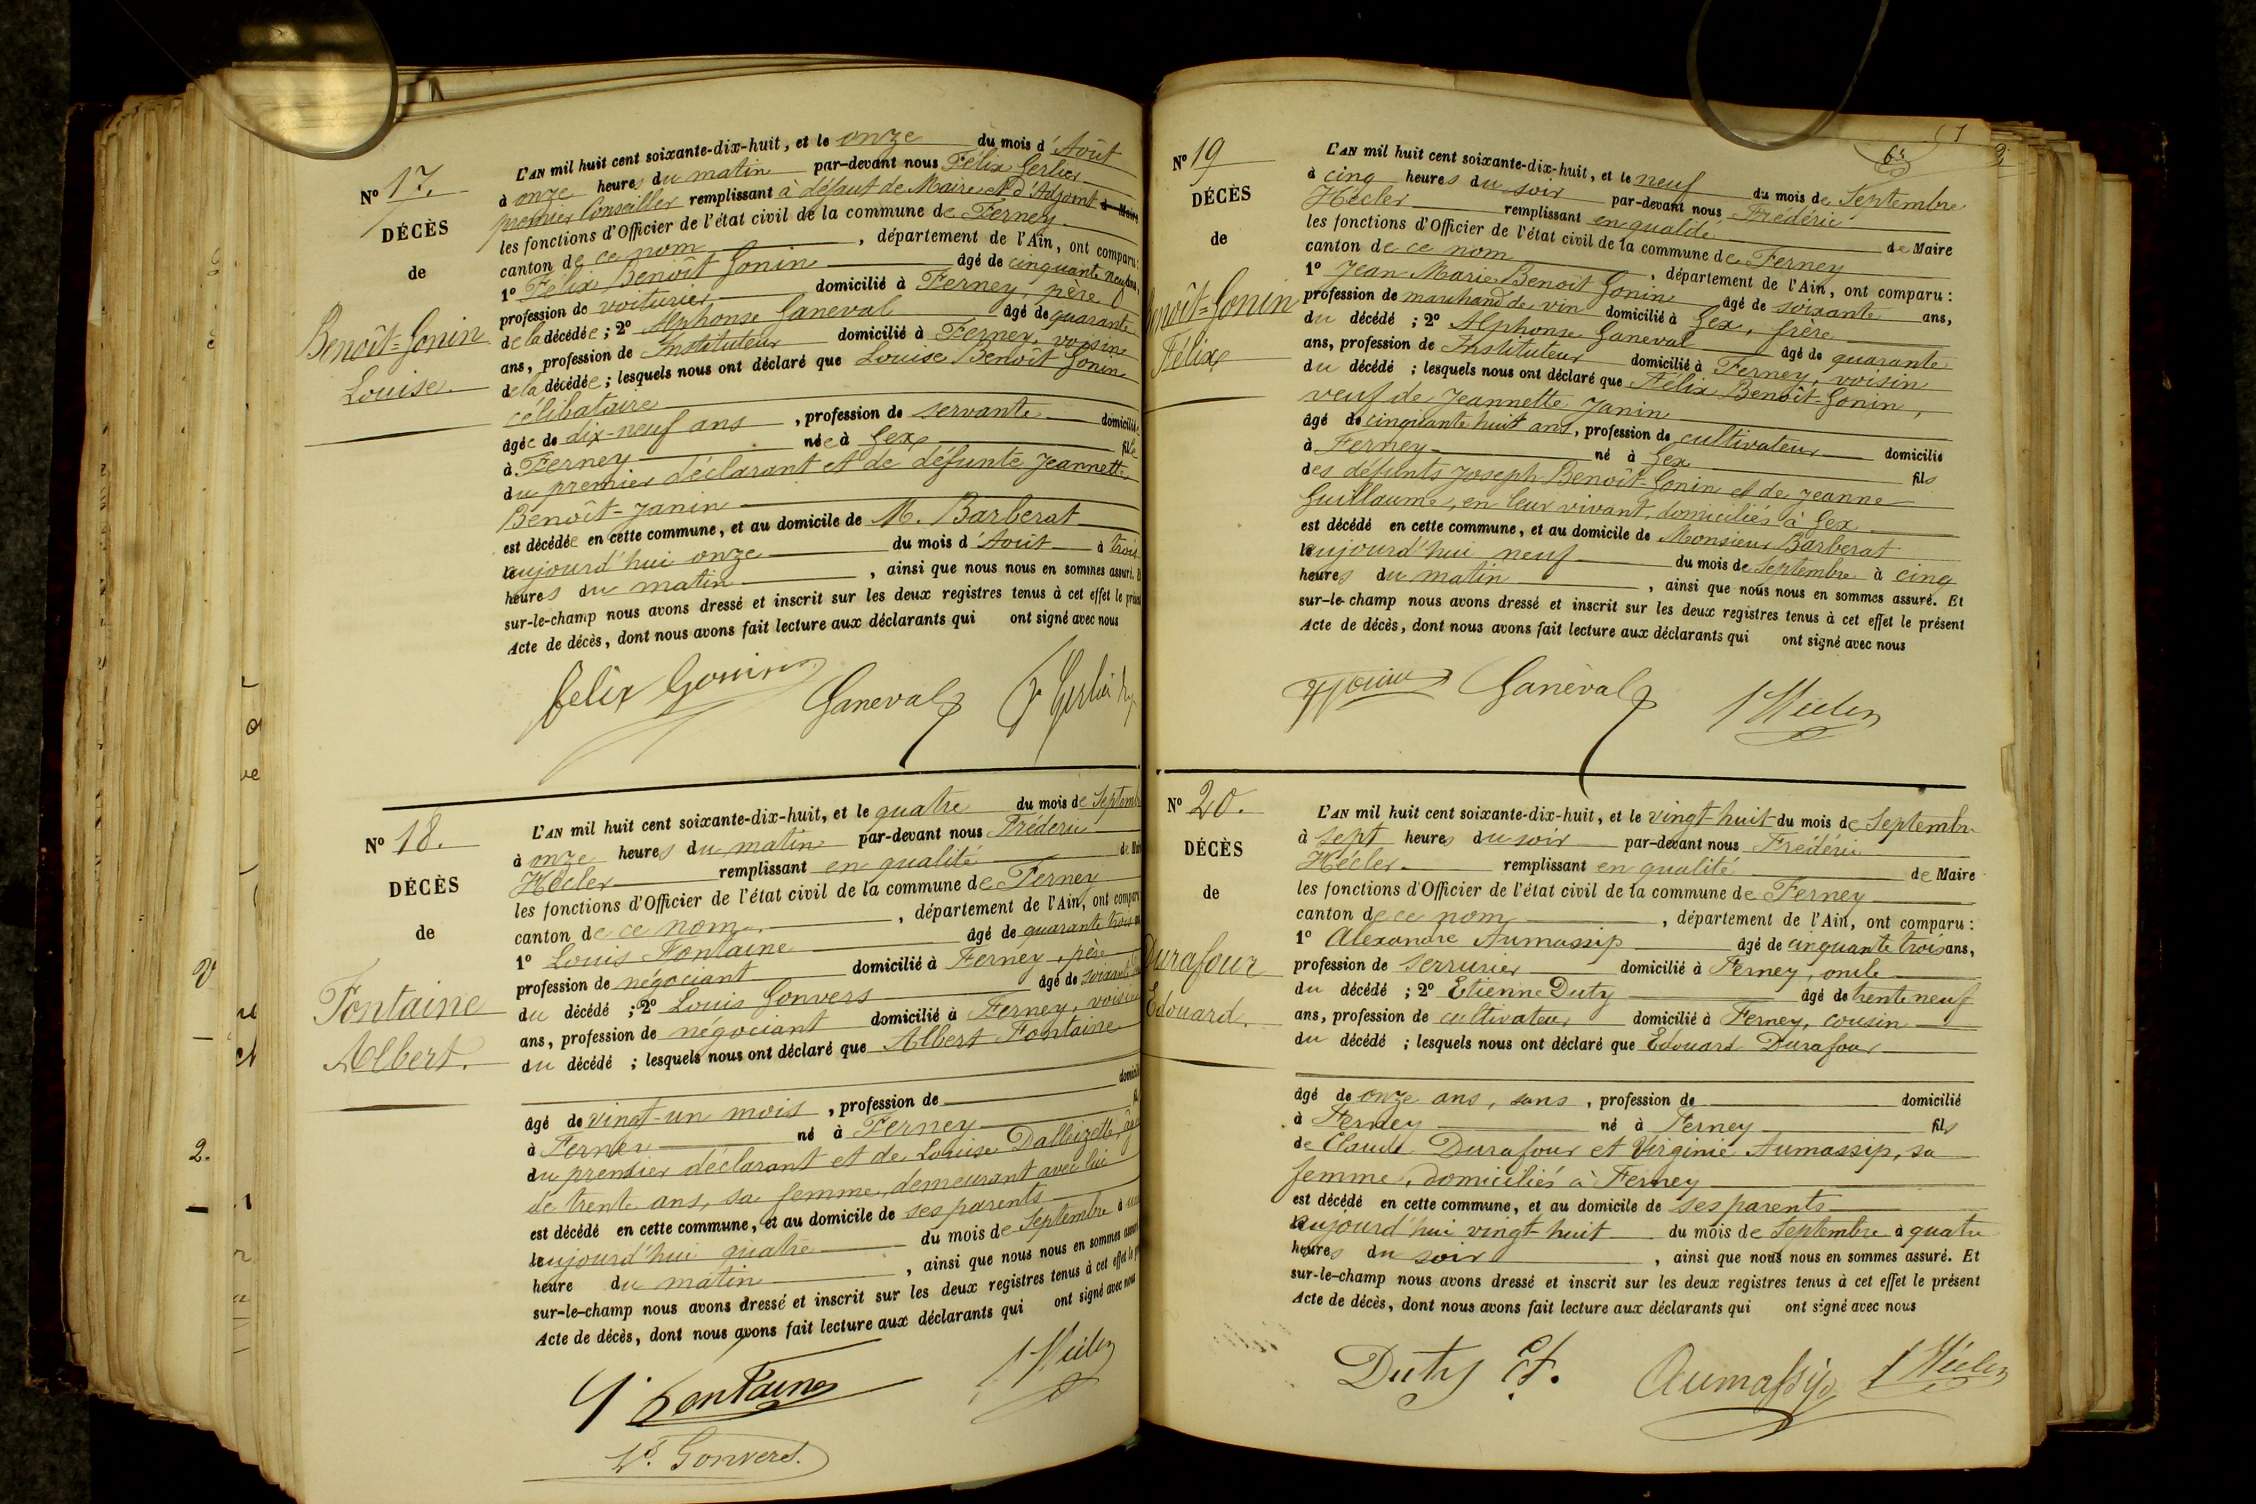 Nº 17.
DÉCÈS
de
Benoît=Gonin
Louise
L'AN mil huit cent soixante-dix-huit, et le onze du mois d'Août
à onze heures du matin par-devant nous Félix Gerlier
premier Conseiller remplissant à défaut de Maire et d'Adjoint
les fonctions d'Officier de l'état civil de la commune de Ferney
canton de ce nom, département de l'Ain, ont comparu:
1º Félix Benoît Gonin âgé de cinquante
profession de voiturier domicilié à Ferney, père
de la décédée; 2º Alphonse Ganeval âgé de quarante
ans, profession de Instituteur domicilié à Ferney, voisin
de la décédée; lesquels nous ont déclaré que Louise Benoît Gonin
célibataire
âgée de dix-neuf ans, profession de servante domiciliée
à Ferney née à Gex fille
du premier déclarant et de défunte Jeannette
Benoît=Janin
est décédée en cette commune, et au domicile de M. Barberat
aujourd'hui onze du mois d'Août à trois
heures du matin, ainsi que nous nous en sommes assuré. Et
sur-le-champ nous avons dressé et inscrit sur les deux registres tenus à cet effet le présent
Acte de décès, dont nous avons fait lecture aux déclarants qui ont signé avec nous
felix Gonin Ganeval
Nº 18.
DÉCÈS
de
Fontaine
Albert.
L'AN mil huit cent soixante-dix-huit, et le quatre du mois de Septembre
à onze heures du matin par-devant nous Frédéric
Hécler remplissant en qualité de Maire
les fonctions d'Officier de l'état civil de la commune de Ferney
canton de ce nom, département de l'Ain, ont comparu
1º Louis Fontaine âgé de quarante trois ans
profession de négociant domicilié à Ferney, père
du décédé; 2º Louis Gonvers âgé de soixante
ans, profession de négociant domicilié à Ferney, voisin
du décédé; lesquels nous ont déclaré que Albert Fontaine
âgé de vingt-un mois, profession de domicilié
à Ferney né à Ferney fils
du premier déclarant et de Louise
de trente ans, sa femme, demeurant avec lui
est décédé en cette commune, et au domicile de ses parents
aujourd'hui quatre du mois de Septembre à une
heure du matin, ainsi que nous nous en sommes assuré
sur-le-champ nous avons dressé et inscrit sur les deux registres tenus à cet effet le
Acte de décès, dont nous avons fait lecture aux déclarants qui ont signé avec nous
Fontaine
Gonvers.
Nº 19
DÉCÈS
de
Benoît=Gonin
Félix
L'AN mil huit cent soixante-dix-huit, et le neuf du mois de Septembre
à cinq heures du soir par-devant nous Frédéric
Hécler remplissant en qualité de Maire
les fonctions d'Officier de l'état civil de la commune de Ferney
canton de ce nom, département de l'Ain, ont comparu:
1º Jean-Marie Benoît Gonin âgé de soixante ans,
profession de marchand de vin domicilié à Gex, frère
du décédé; 2º Alphonse Ganeval âgé de quarante
ans, profession de Instituteur domicilié à Ferney, voisin
du décédé; lesquels nous ont déclaré que Félix Benoît=Gonin,
veuf de Jeannette Janin
âgé de cinquante huit ans, profession de cultivateur domicilié
à Ferney né à Gex fils
des défunts Joseph Benoît=Gonin et de Jeanne
Guillaume, en leur vivant, domiciliés à Gex
est décédé en cette commune, et au domicile de Monsieur Barberat
aujourd'hui neuf du mois de Septembre à cinq
heures du matin, ainsi que nous nous en sommes assuré. Et
sur-le-champ nous avons dressé et inscrit sur les deux registres tenus à cet effet le présent
Acte de décès, dont nous avons fait lecture aux déclarants qui ont signé avec nous
Ganeval
Nº 20.
DÉCÈS
de
Durafour
Edouard.
L'AN mil huit cent soixante-dix-huit, et le vingt-huit du mois de Septembre
à sept heures du soir par-devant nous Frédéric
Hécler remplissant en qualité de Maire
les fonctions d'Officier de l'état civil de la commune de Ferney
canton de ce nom, département de l'Ain, ont comparu:
1º Alexandre Aumassip âgé de cinquante trois ans,
profession de serrurier domicilié à Ferney, oncle
du décédé; 2º Etienne Duty âgé de trente neuf
ans, profession de cultivateur domicilié à Ferney, cousin
du décédé; lesquels nous ont déclaré que Edouard Durafour
âgé de onze ans, sans, profession de domicilié
à Ferney né à Ferney fils
de Claude Durafour et Virginie Aumassip, sa
femme, domiciliés à Ferney
est décédé en cette commune, et au domicile de ses parents
aujourd'hui vingt-huit du mois de Septembre à quatre
heures du soir, ainsi que nous nous en sommes assuré. Et
sur-le-champ nous avons dressé et inscrit sur les deux registres tenus à cet effet le présent
Acte de décès, dont nous avons fait lecture aux déclarants qui ont signé avec nous
Duty Et. Aumassip